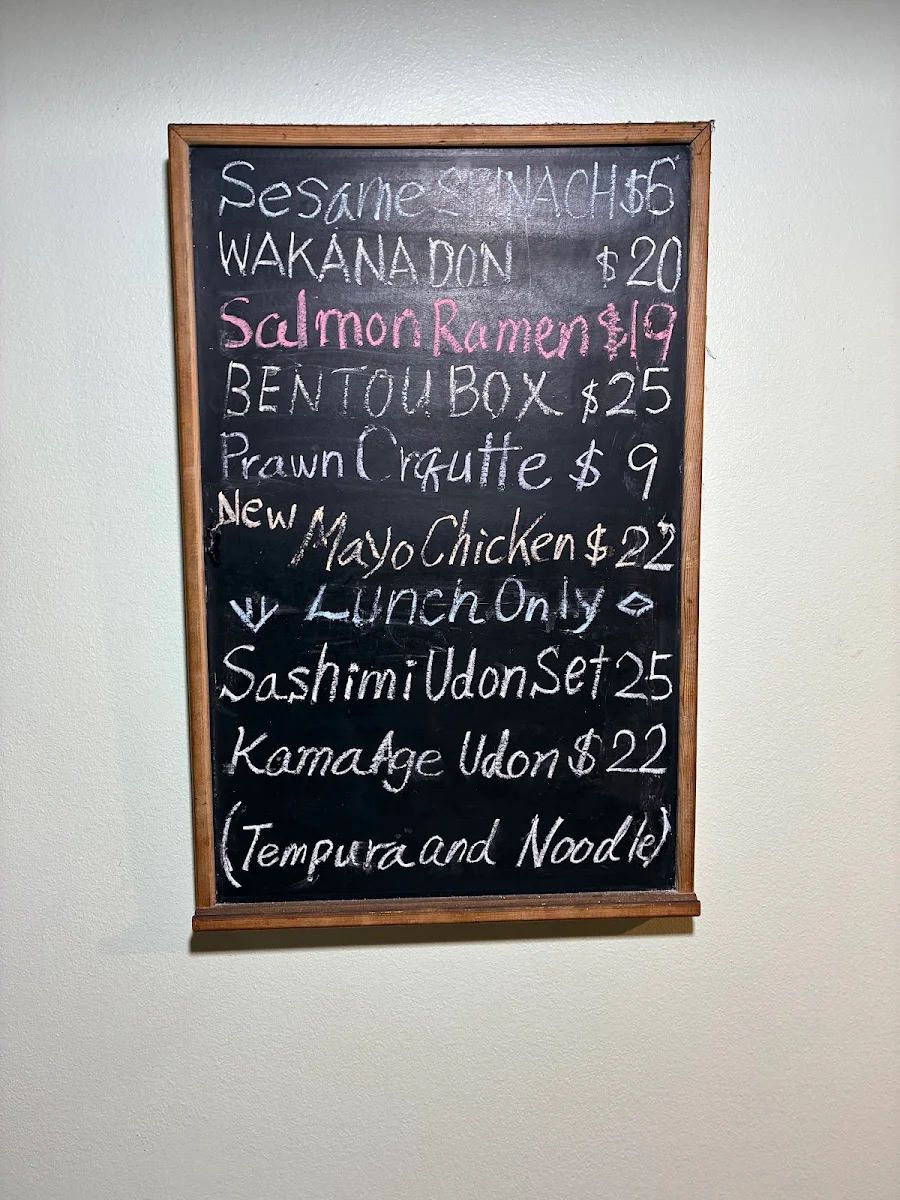 Sesame SPINACH $6
WAKANA DON $20
Salmon Ramen $19
BENTOU BOX $25
Prawn Crqutte $9
New Mayo Chicken $22
Lunch Only
Sashimi Udon Set 25
KamaAge Udon $22
(Tempura and Noodle)